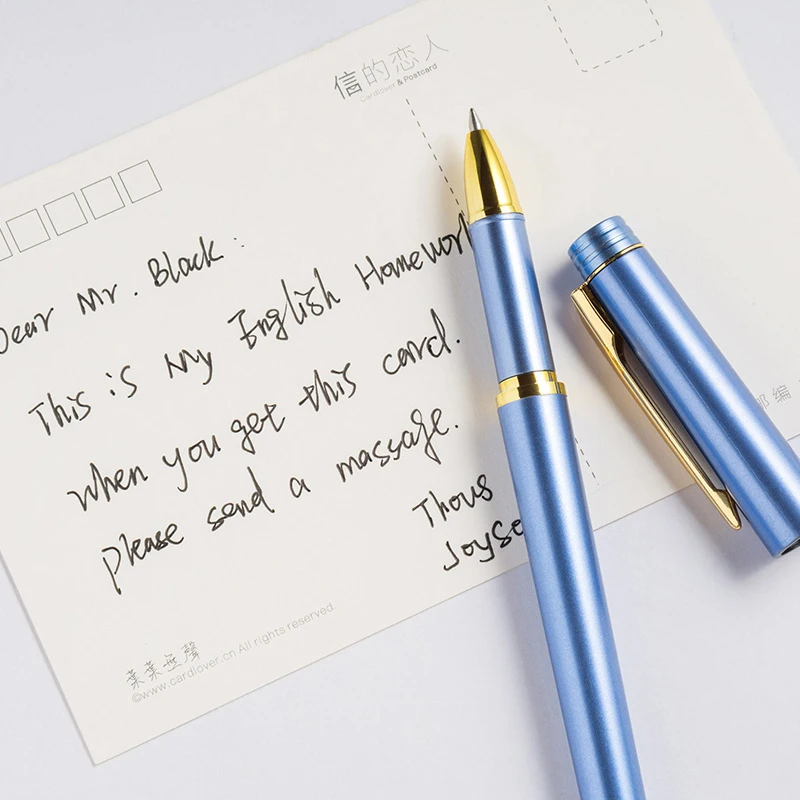 信的恋人
Cardlover & Postcard
Dear Mr. Black:
This is My English Homework
when you get this card.
please send a massage.
Thous
邮编
葉葉無聲
©www.cardlover.cn All rights reserved.